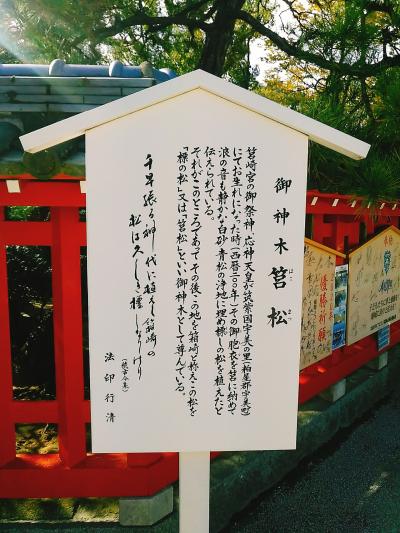 御神木 筥松
はこ まつ
筥崎宮の御祭神、応神天皇が筑紫国宇美の里(粕屋郡宇美町)
にてお生れになった時(西暦二〇〇年)その御胞衣を筥に納めて
浪の音も静かな白砂青松の浄地に埋め標しの松を植えたと
伝えられている。
それがこのところであってその後この地を箱崎と称えこの松を
「標の松」又は「筥松」といい御神木として尊んでいる。
千早振る神代に植えし箱崎の
松は久しき標しなりけり
(続古今集)
法印行清
優勝祈願